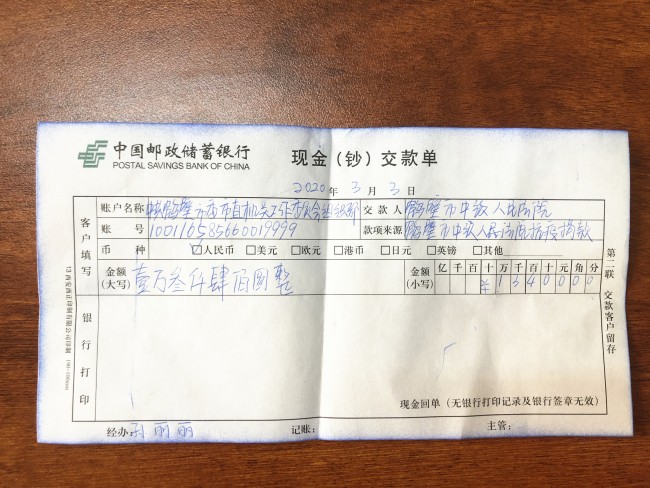 中国邮政储蓄银行 现金（钞）交款单
POSTAL SAVINGS BANK OF CHINA
2020 年 3 月 3 日
客户填写
账户名称 鹤壁市委市直机关工作委员会 交款人 鹤壁市中级人民法院
账号 100116585660019999 款项来源 鹤壁市中级人民法院抗疫捐款
币种 □人民币 □美元 □欧元 □港币 □日元 □英镑 □其他
金额（大写） 壹万叁仟肆佰圆整 金额（小写） 亿 千 百 十 万 千 百 十 元 角 分
¥ 1 3 4 0 0 0 0
银行打印
现金回单（无银行打印记录及银行签章无效）
经办: 孙丽丽 记账: 主管:
第二联 交款客户留存